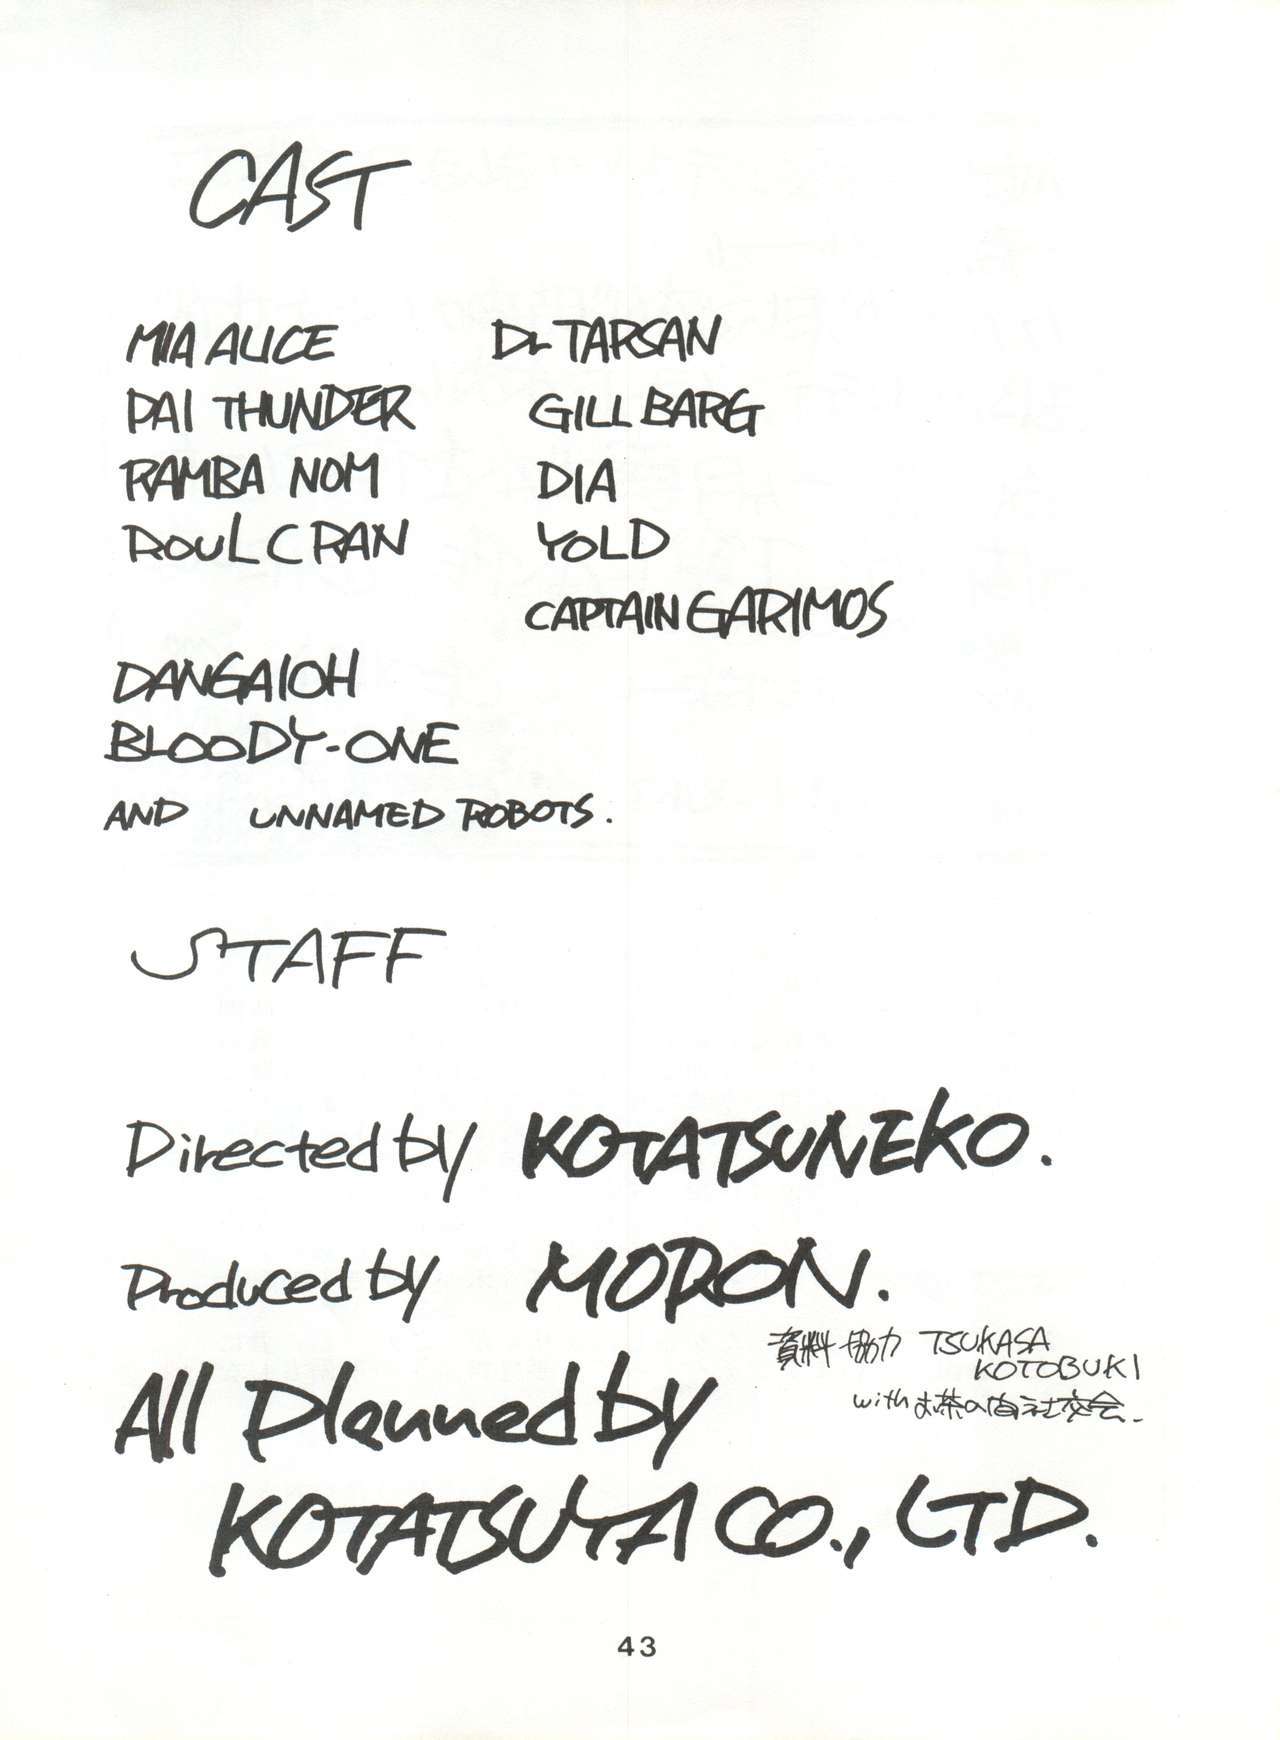 CAST
MIA ALICE
PAI THUNDER
RAMBA NOM
ROUL CRAN
Dr TARSAN
GILL BARG
DIA
YOLD
CAPTAIN GARIMOS
DANGAIOH
BLOODY-ONE
AND UNNAMED ROBOTS.
STAFF
Directed by KOTATSUNEKO.
Produced by MORON.
資料協力 TSUKASA
KOTOBUKI
with お茶の直社交会.
All Planned by
KOTATSUYA CO., LTD.
43